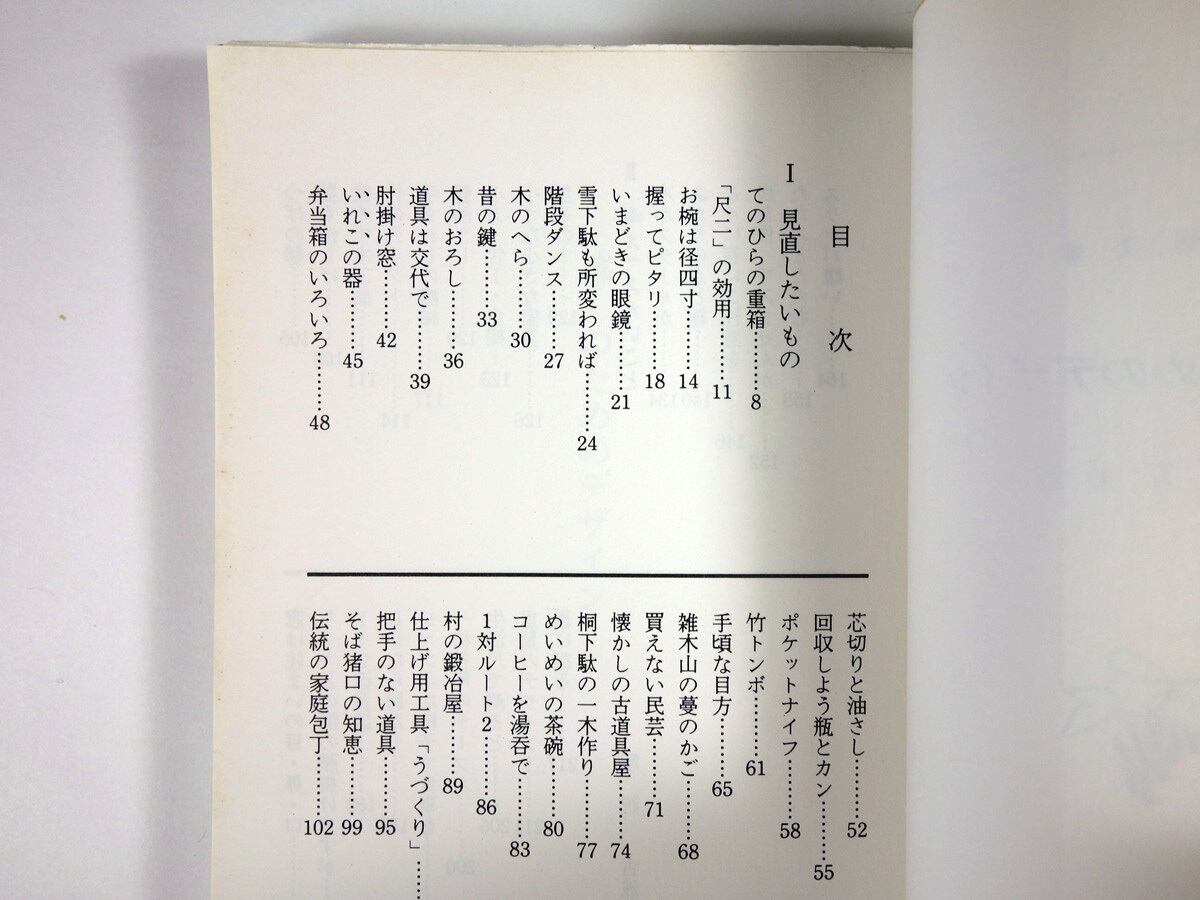 目次
I 見直したいもの
てのひらの重箱…………8
「尺二」の効用…………11
お椀は径四寸…………14
握ってピタリ…………18
いまどきの眼鏡…………21
雪下駄も所変われば…………24
階段ダンス…………27
木のへら…………30
昔の鍵…………33
木のおろし…………36
道具は交代で…………39
肘掛け窓…………42
いれこの器…………45
弁当箱のいろいろ…………48
芯切りと油さし…………52
回収しよう瓶とカン…………55
ポケットナイフ…………58
竹トンボ…………61
手頃な目方…………65
雑木山の蔓のかご…………68
買えない民芸…………71
懐かしの古道具屋…………74
桐下駄の一木作り…………77
めいめいの茶碗…………80
コーヒーを湯呑で…………83
1対ルート2…………86
村の鍛冶屋…………89
仕上げ用工具「うづくり」……
把手のない道具…………95
そば猪口の知恵…………99
伝統の家庭包丁…………102